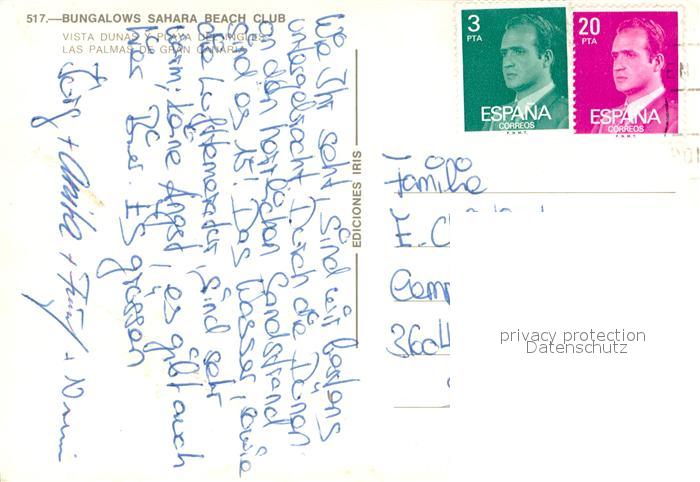 517.—BUNGALOWS SAHARA BEACH CLUB
VISTA DUNAS Y PLAYA DEL INGLES
LAS PALMAS DE GRAN CANARIA
EDICIONES IRIS
3
PTA
ESPAÑA
CORREOS
F.N.M.T.
20
PTA
ESPAÑA
CORREOS
F.N.M.T.
Wie Ihr seht, sind wir bestens
untergebracht. Durch die Dünen
an den herrlichen Sandstrand
sind es 15! Das Wasser, sowie
die Lufttemperatur, sind sehr
warm; keine Angst, es gibt auch
was Bier. Es grüssen
+ + +
Familie
E. C
Camp
360
privacy protection
Datenschutz